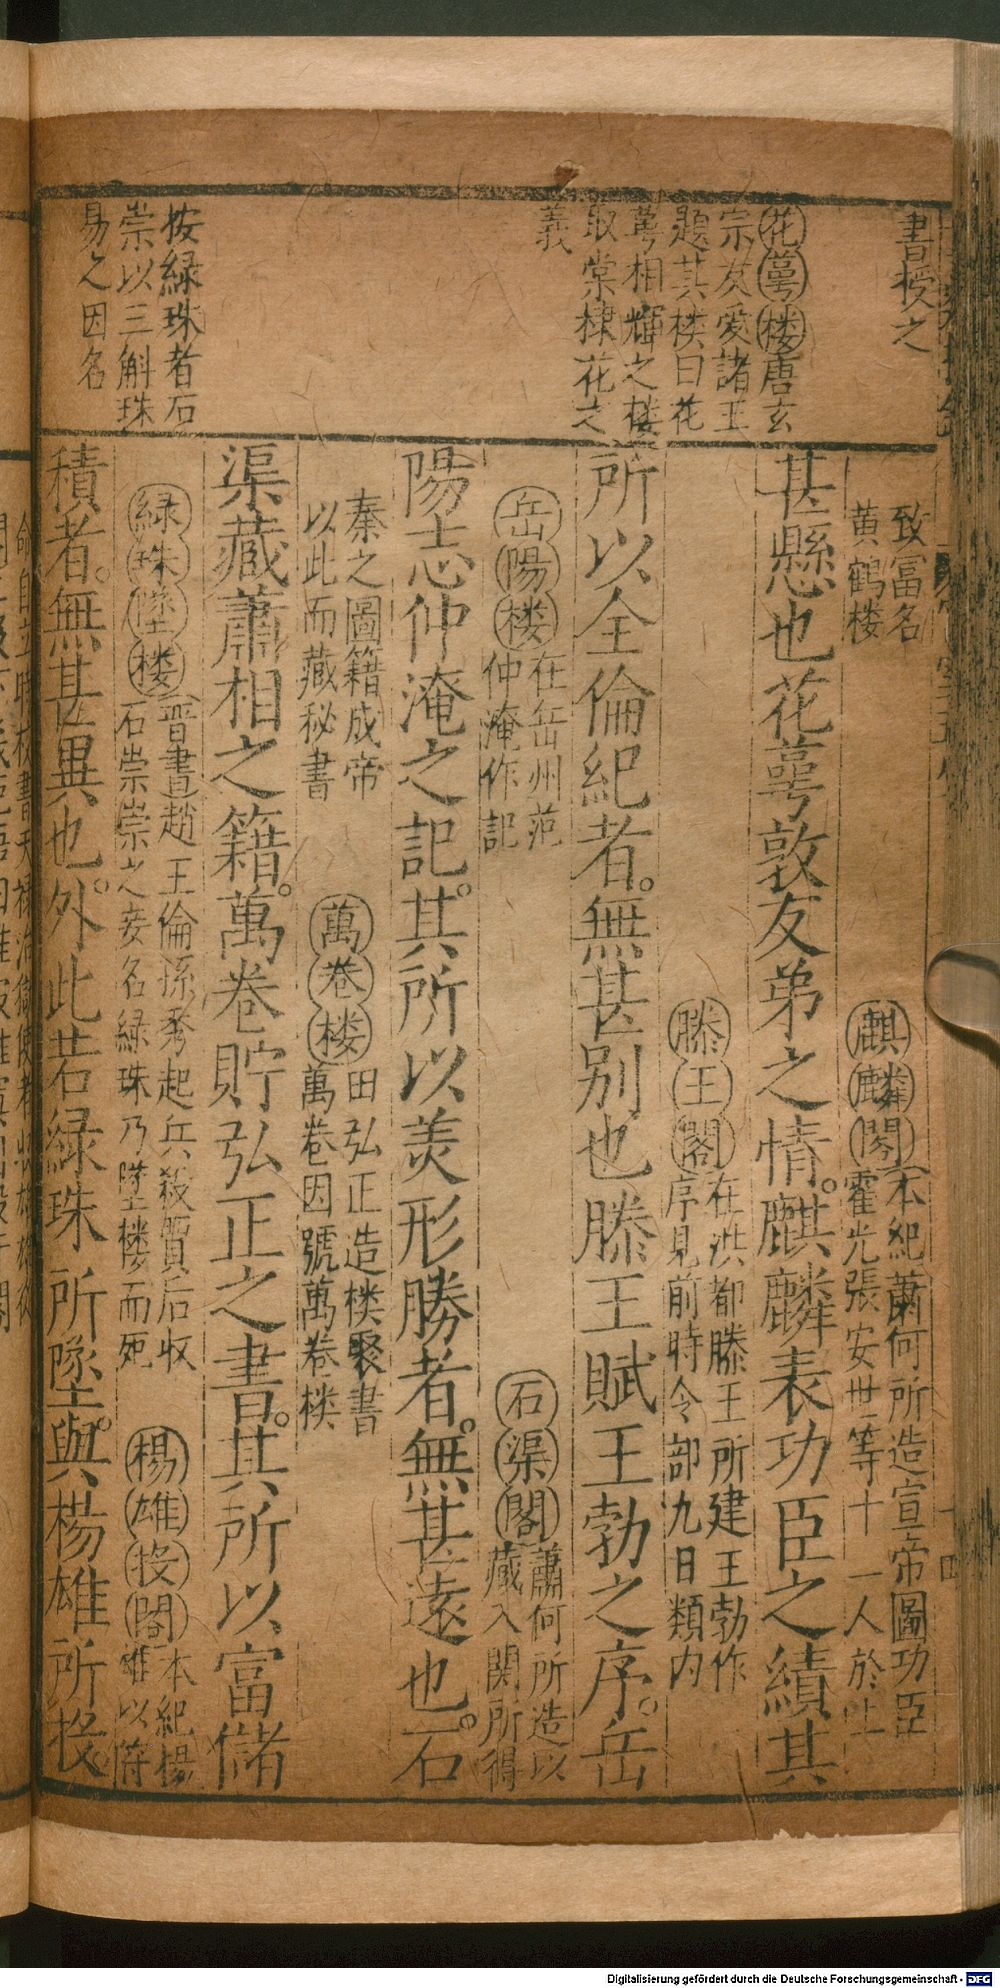 書授之
花萼楼唐玄
宗友愛諸王
題其楼曰花
萼相輝之楼
取棠棣花之
義
按緑珠者石
崇以三斛珠
易之因名
致富名
黄鶴楼
麒麟閣本紀蕭何所造宣帝圖功臣
霍光張安世等十一人於上
甚懸也花萼敦友弟之情。麒麟表功臣之績其
滕王閣在洪都滕王所建王勃作
序見前時令部九日類内
所以全倫紀者。無甚别也滕王賦王勃之序。岳
岳陽楼在岳州范
仲淹作記
石渠閣蕭何所造以
藏入関所得
陽志仲淹之記。其所以羨形勝者。無甚遠也。石
秦之圖籍成帝
以此而藏秘書
萬巻楼田弘正造楼聚書
萬巻因號萬巻楼
渠藏蕭相之籍。萬巻貯弘正之書。其所以富儲
緑珠墜楼晋書趙王倫孫秀起兵殺賈后收
石崇崇之妾名緑珠乃墜楼而死
楊雄投閣本紀楊
雄以符
積者。無甚異也。外此若緑珠所墜。與楊雄所投。
十四
Digitalisierung gefördert durch die Deutsche Forschungsgemeinschaft - DFG